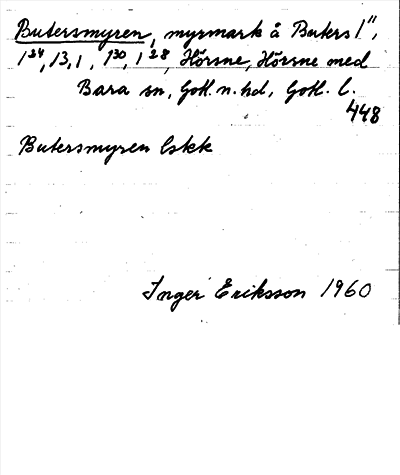 Butersmyren, myrmark å Buters 1¹¹,
1²⁴, 13,1, 1³⁰, 1²⁸, Hörsne, Hörsne med
Bara sn, Gotl. n. hd, Gotl. l.
448
Butersmyren Eskk
Inger Eriksson 1960